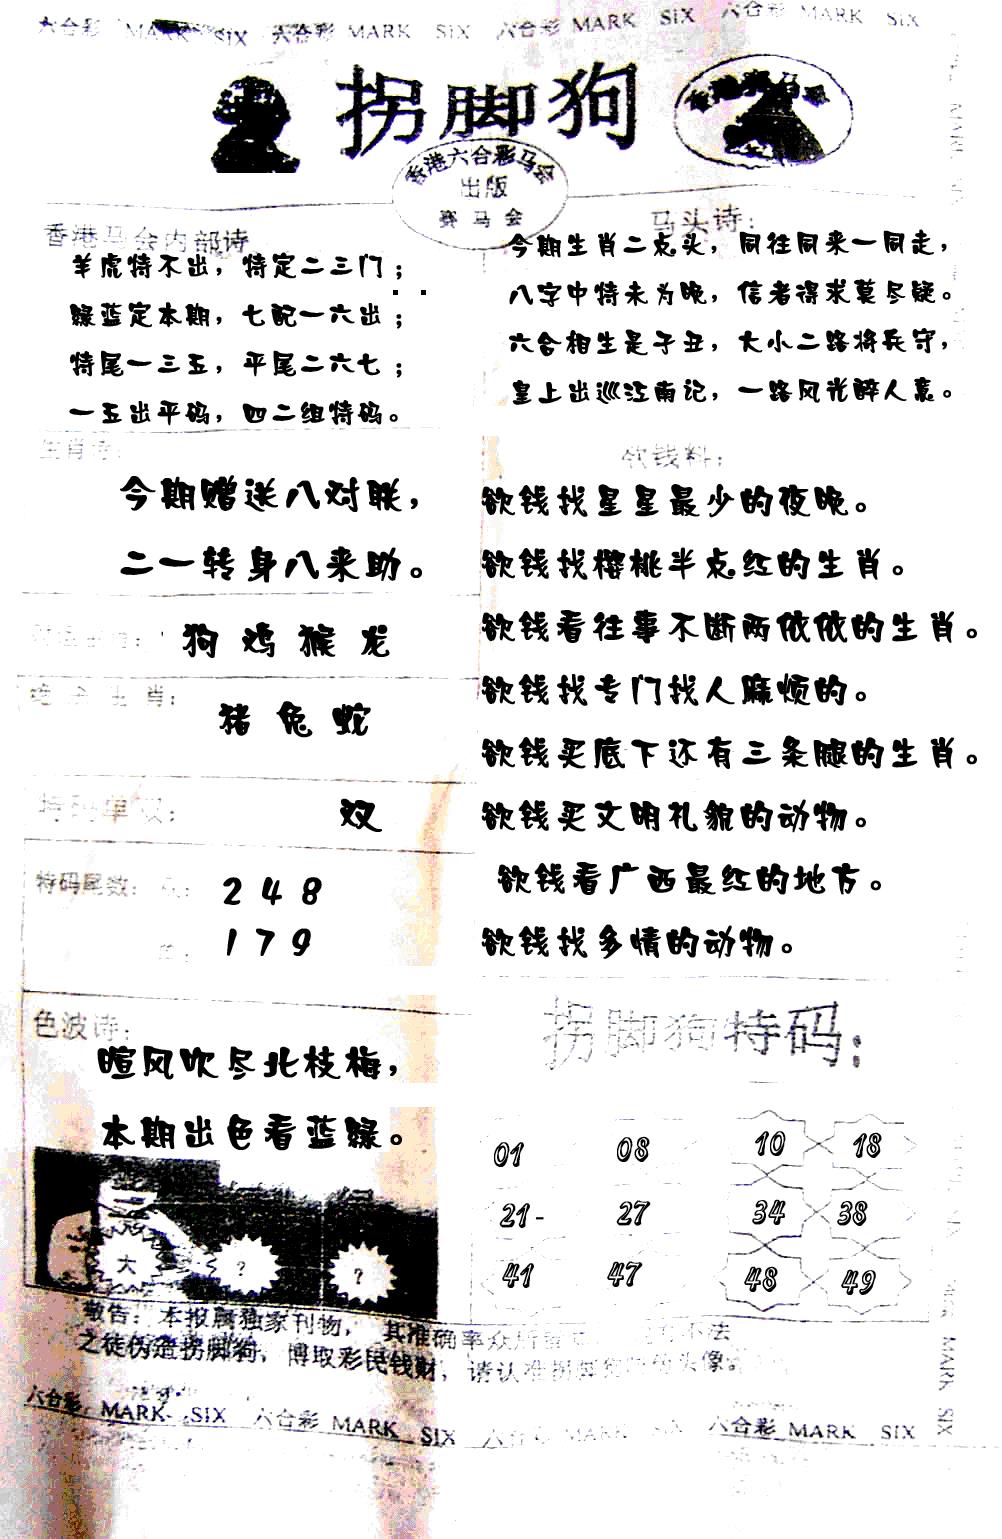 六合彩 MARK SIX 六合彩 MARK SIX 六合彩 MARK SIX 六合彩 MARK SIX
拐脚狗
香港六合彩马会
出版
赛马会
香港马会内部诗
羊虎特不出，特定二三门；
绿蓝定本期，七配一六出；
特尾一三五，平尾二六七；
一五出平码，四二组特码。
马头诗：
今期生肖二点头，同往同来一同走，
八字中特未为晚，信者得求莫尽疑。
六合相生是子丑，大小二路将兵守，
皇上出巡江南记，一路风光醉人意。
生肖诗：
今期赠送八对联，
二一转身八来助。
狗 鸡 猴 龙
绝杀生肖：
猪 兔 蛇
特码单双：
双
特码尾数：
2 4 8
1 7 9
欲钱料：
欲钱找星星最少的夜晚。
欲钱找樱桃半点红的生肖。
欲钱看往事不断两依依的生肖。
欲钱找专门找人麻烦的。
欲钱买底下还有三条腿的生肖。
欲钱买文明礼貌的动物。
欲钱看广西最红的地方。
欲钱找多情的动物。
色波诗：
暄风吹尽北枝梅，
本期出色看蓝绿。
大 ? ?
拐脚狗特码：
01 08 10 18
21- 27 34 38
41 47 48 49
敬告：本报属独家刊物，其准确率众所皆 不法
之徒伪造拐脚狗，博取彩民钱财，请认准拐脚狗 头像
六合彩 MARK SIX 六合彩 MARK SIX 六合彩 MARK SIX 六合彩 MARK SIX
MARK SIX